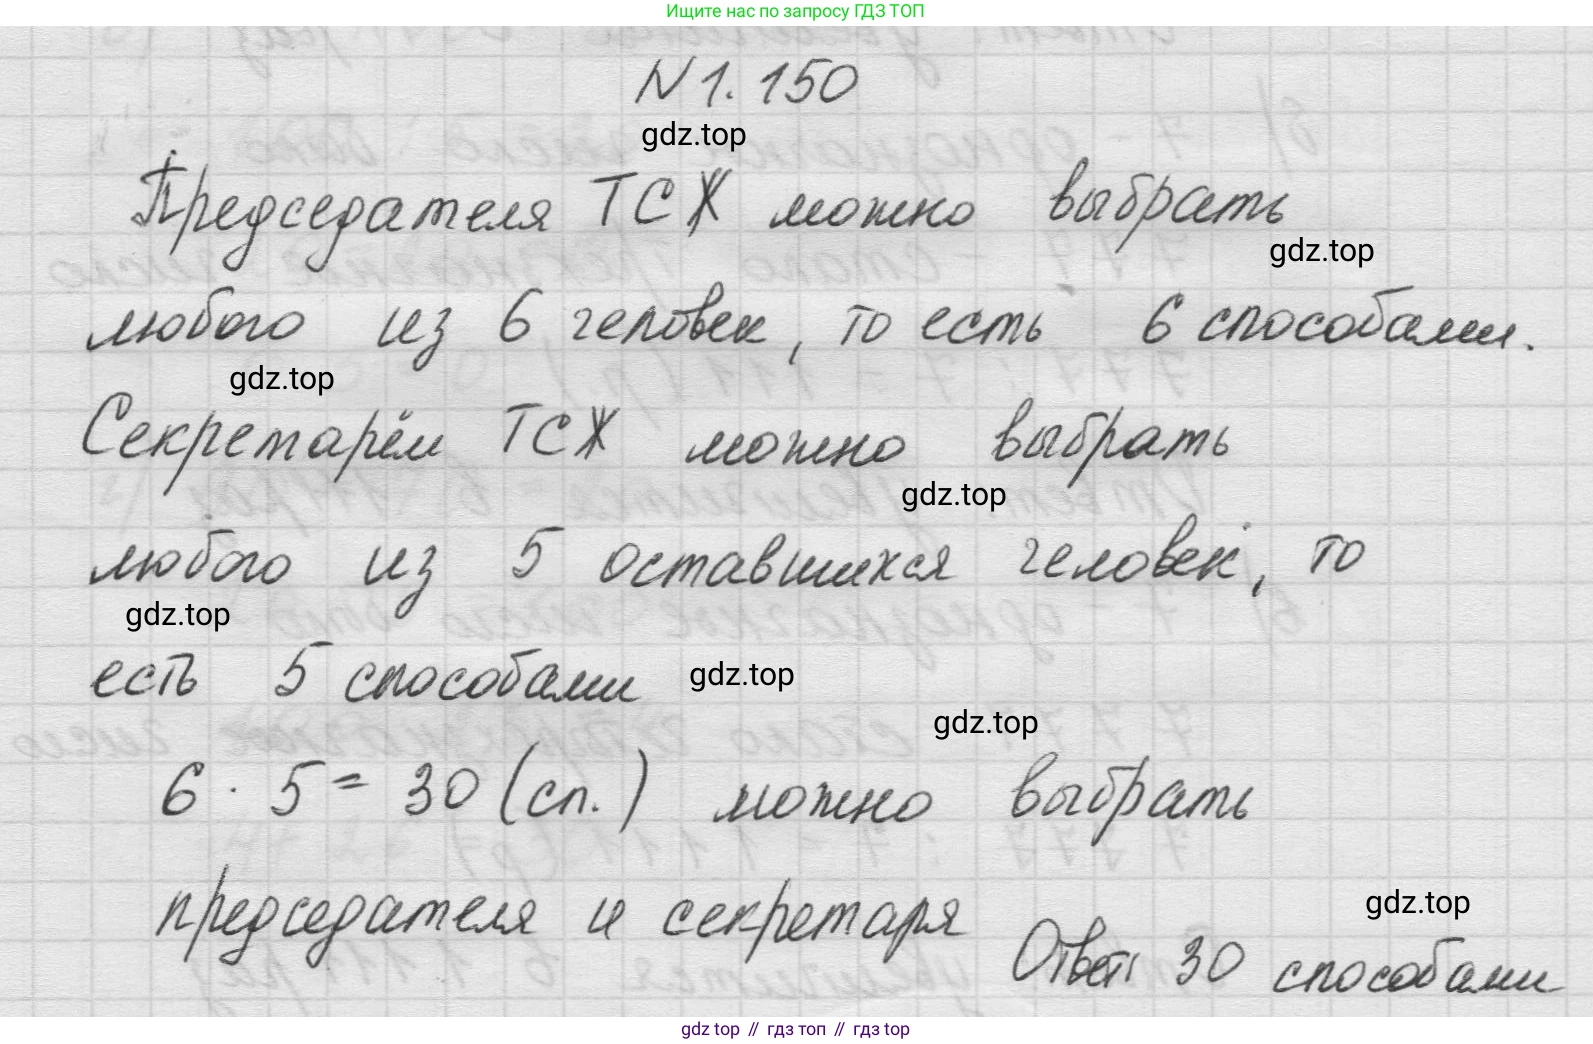 Ищите нас по запросу ГДЗ ТОП
N 1. 150
gdz.top
Председателя ТСЖ можно выбрать
gdz.top
любого из 6 человек, то есть 6 способами.
gdz.top
Секретарём ТСЖ можно выбрать
gdz.top
любого из 5 оставшихся человек, то
gdz.top
есть 5 способами
gdz.top
gdz.top
6 · 5 = 30 (сп.) можно выбрать
председателя и секретаря
gdz.top
Ответ: 30 способами
gdz top // гдз топ // гдз top